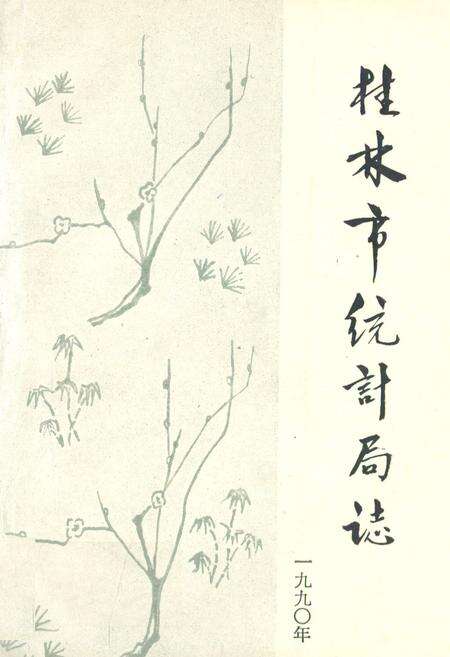 桂林市統計局誌
一九九〇年